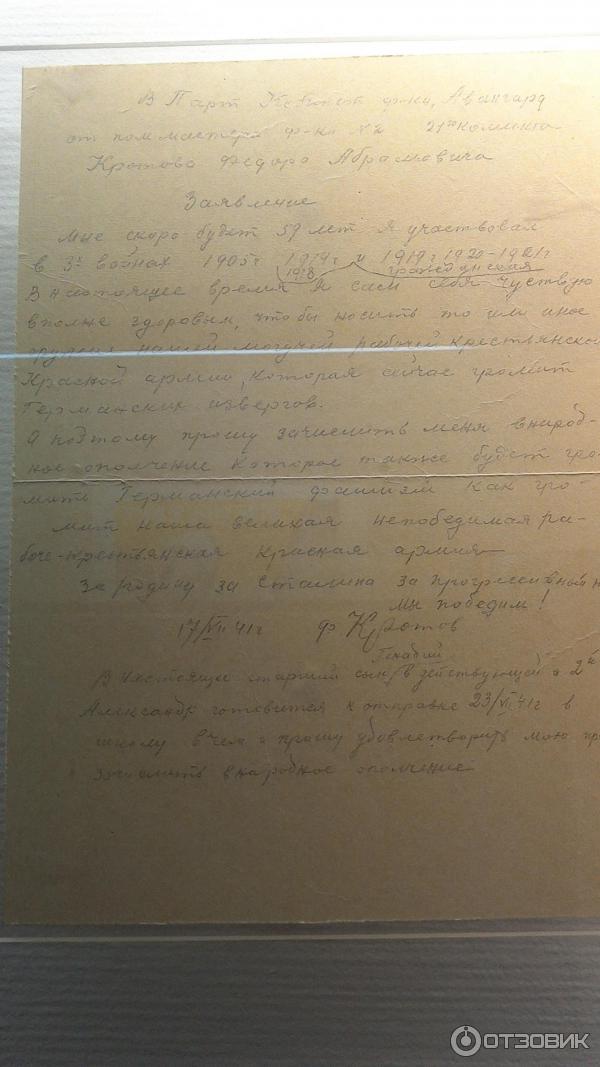 В Парт Комитет ф-ки, Авангард
от пом мастера ф-ки №2
Кротова Федора Абрамовича
Заявление
Мне скоро будет 59 лет Я участвовал
в 3х войнах 1905г 1919г и 1919г 1920-1921г
1918 гражданская
В настоящее время Я сам себя чуствую
вполне здоровым, чтобы носить то или иное
оружие нашей могучей рабочей крестьянской
Красной армии, которая сейчас громит
Германских извергов.
А поэтому прошу зачислить меня внарод-
ное ополчение которое также будет гро-
мить Германский фашизм как гро-
мит наша великая непобедимая ра-
боче-крестьянская красная армия
За родину за Сталина за прогрессивный
Мы победим!
17/VII 41г Ф Кротов
Генадий
В настоящее старший сын в действующей а 2й
Александр готовится к отправке 23/VII 41г в
школу вчем и прошу удовлетворить мою
зачислить внародное ополчение
ОТЗОВИК